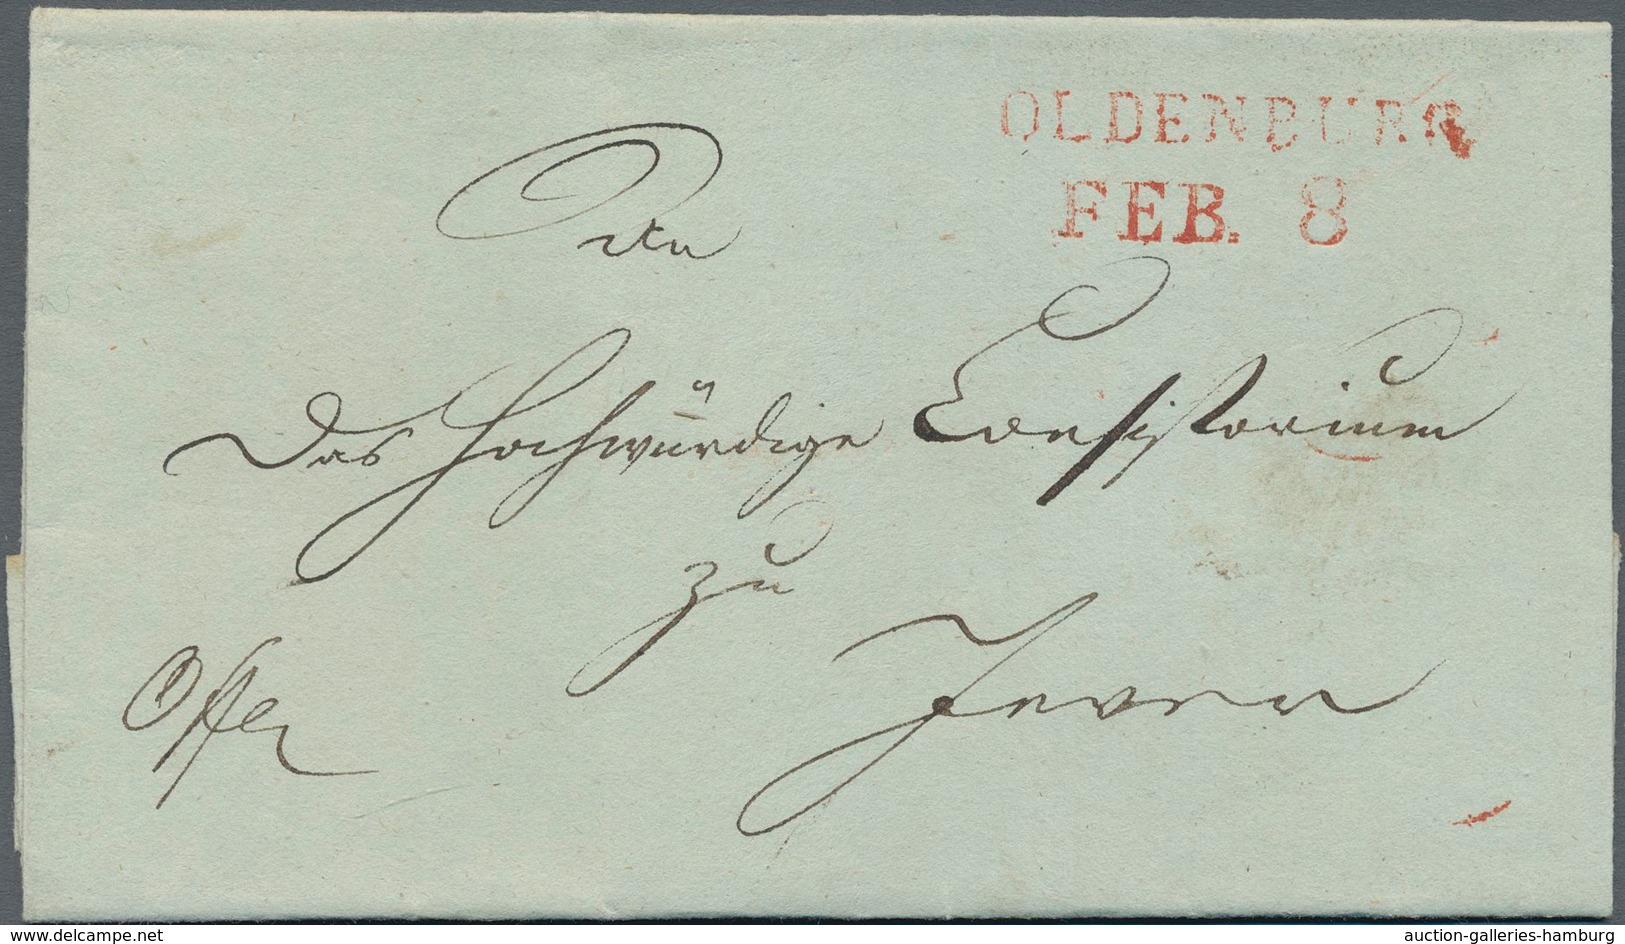 OLDENBURG
FEB. 8
An
das Hochwürdige Consistorium
zu
Jever
www.delcampe.net
auction-galleries-hamburg